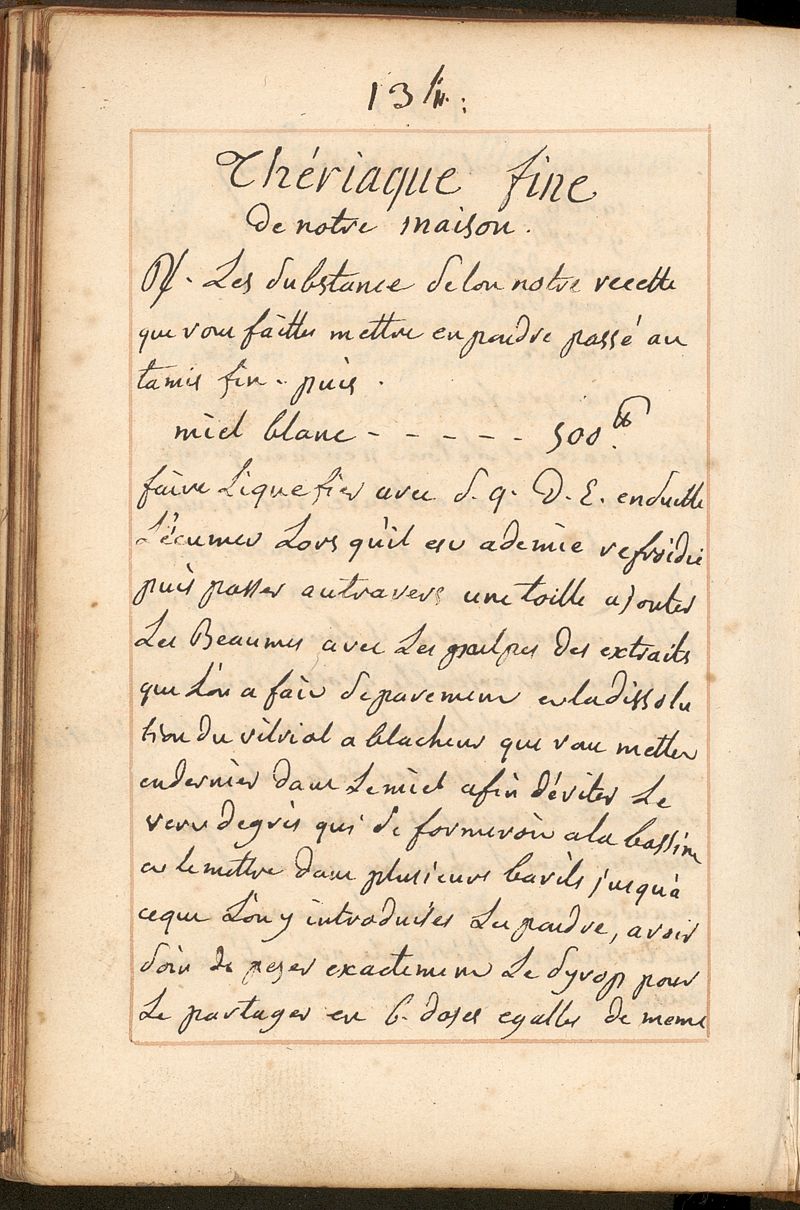 134.:
Thériaque fine
De notre maison.
℞. Les substance selon notre recette
que vous faittes mettre en poudre passé au
tamis fin - puis.
miel blanc - - - - - 500 ℔.
faire Liquefier avec S. q. D. E. ensuitte
L'écumer Lors qu'il est ademie refroidie
puis passer autravers une toille ajouter
Les Beaumes avec Les poulpes des extraits
que L'on a fait séparement et la dissolu
tion du vitriol a blacheur que vous mettes
en dernier dans Le miel afin d'éviter Le
vert degris qui se formeroit a la bassine
et le mettre dans plusieurs barils jusqu'à
ceque L'on y introduises La poudre, avoir
soin de peser exactement Le syrop pour
Le partager en 6. doses egalles de meme